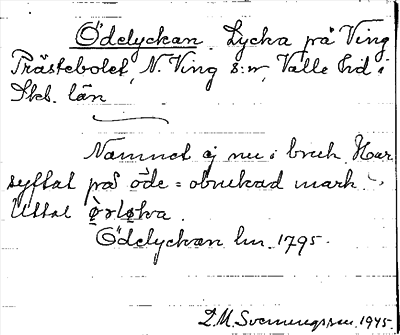 Ödelyckan. Lycka på Ving
Prästebolet, N. Ving s:n, Valle hd i
Skb. län
Namnet ej nu i bruk. Har
syftat på öde = obrukad mark.
Uttal
Ödelyckan hm. 1795.
D. M. Svenungsson. 1945.